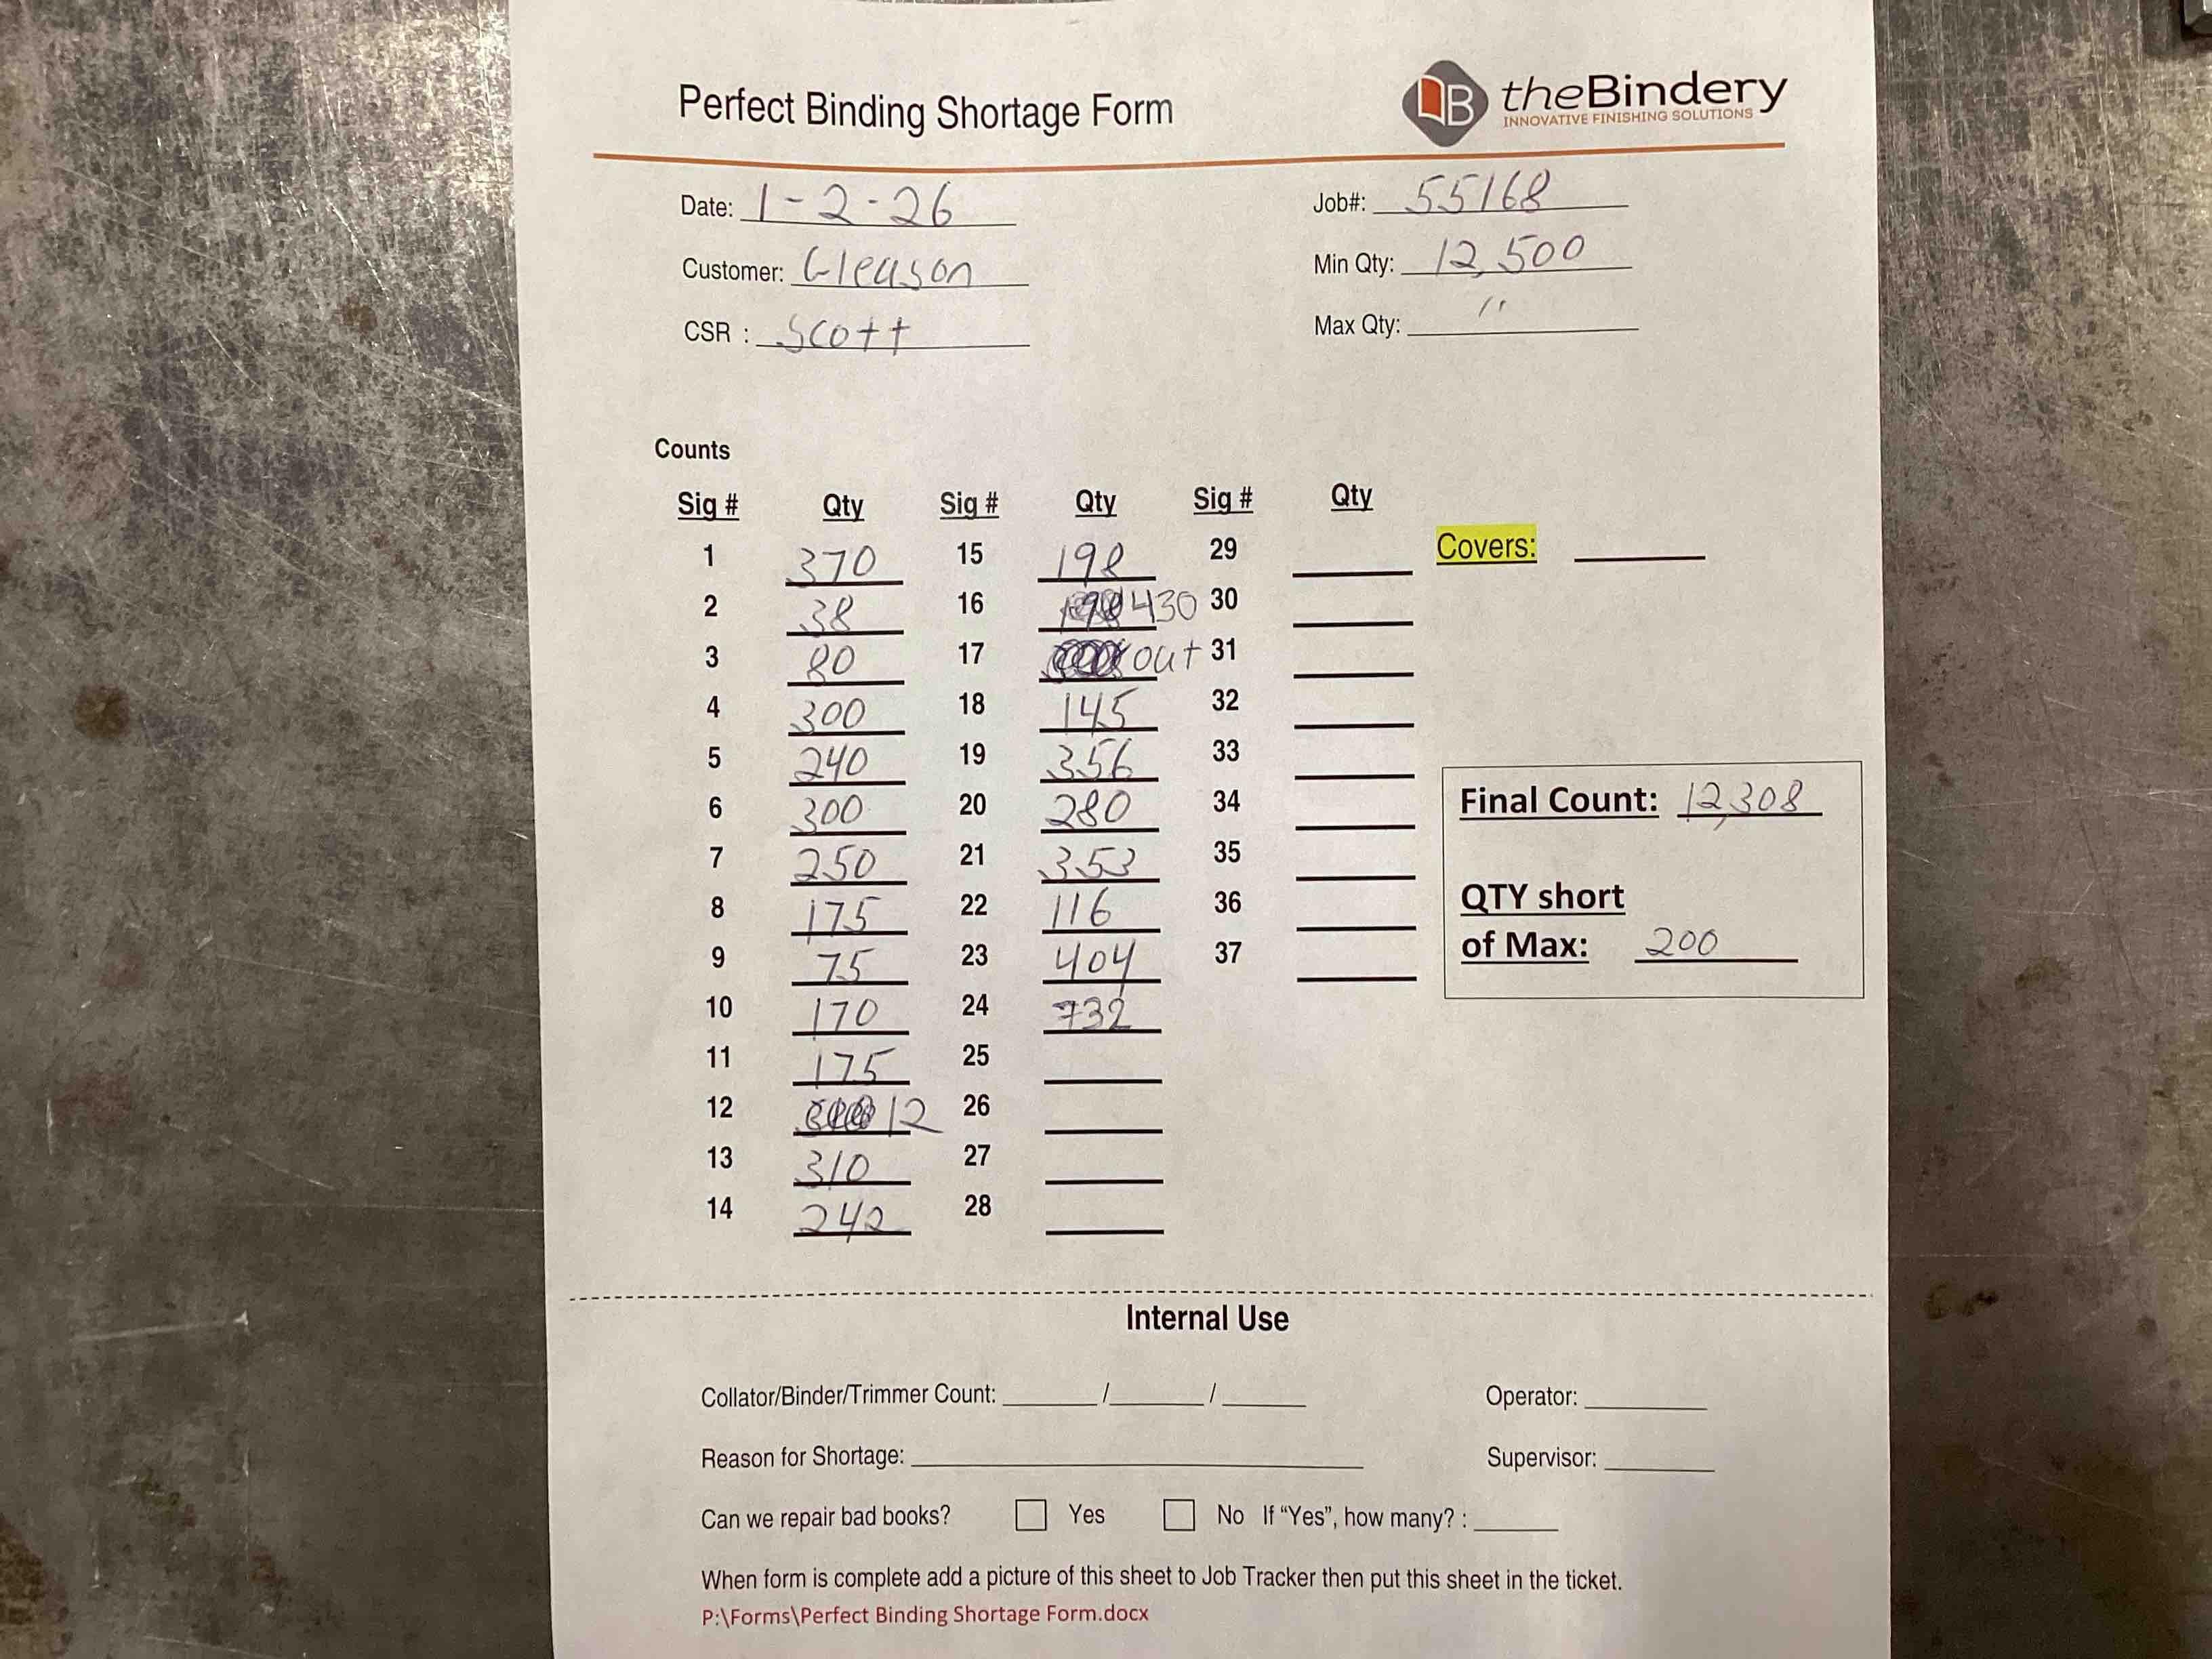 Perfect Binding Shortage Form
B theBindery
INNOVATIVE FINISHING SOLUTIONS
Date: 1-2-26 Job#: 55168
Customer: Gleason Min Qty: 12,500
CSR : Scott Max Qty: "
Counts
Sig # Qty Sig # Qty Sig # Qty
1 370 15 198 29 Covers:
2 38 16 430 30
3 80 17 out 31
4 300 18 145 32
5 240 19 356 33
6 300 20 280 34 Final Count: 12,308
7 250 21 353 35
8 175 22 116 36 QTY short
9 75 23 404 37 of Max: 200
10 170 24 732
11 175 25
12 12 26
13 310 27
14 242 28
Internal Use
Collator/Binder/Trimmer Count: / / Operator:
Reason for Shortage: Supervisor:
Can we repair bad books? Yes No If "Yes", how many? :
When form is complete add a picture of this sheet to Job Tracker then put this sheet in the ticket.
P:\Forms\Perfect Binding Shortage Form.docx